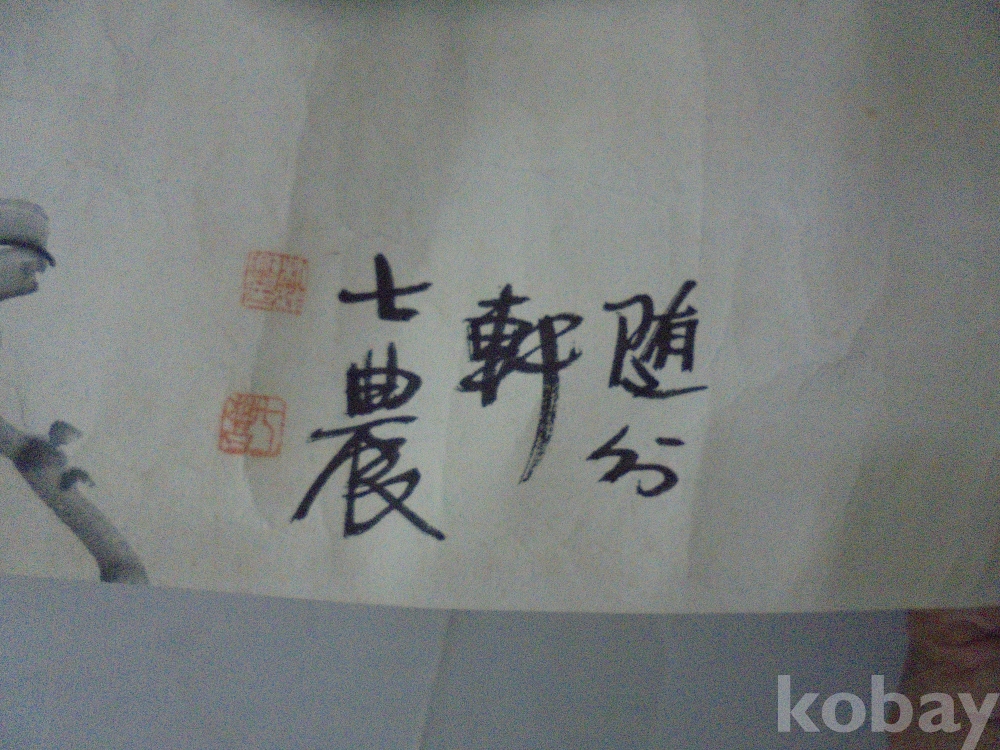 随分
軒
七農
kobay